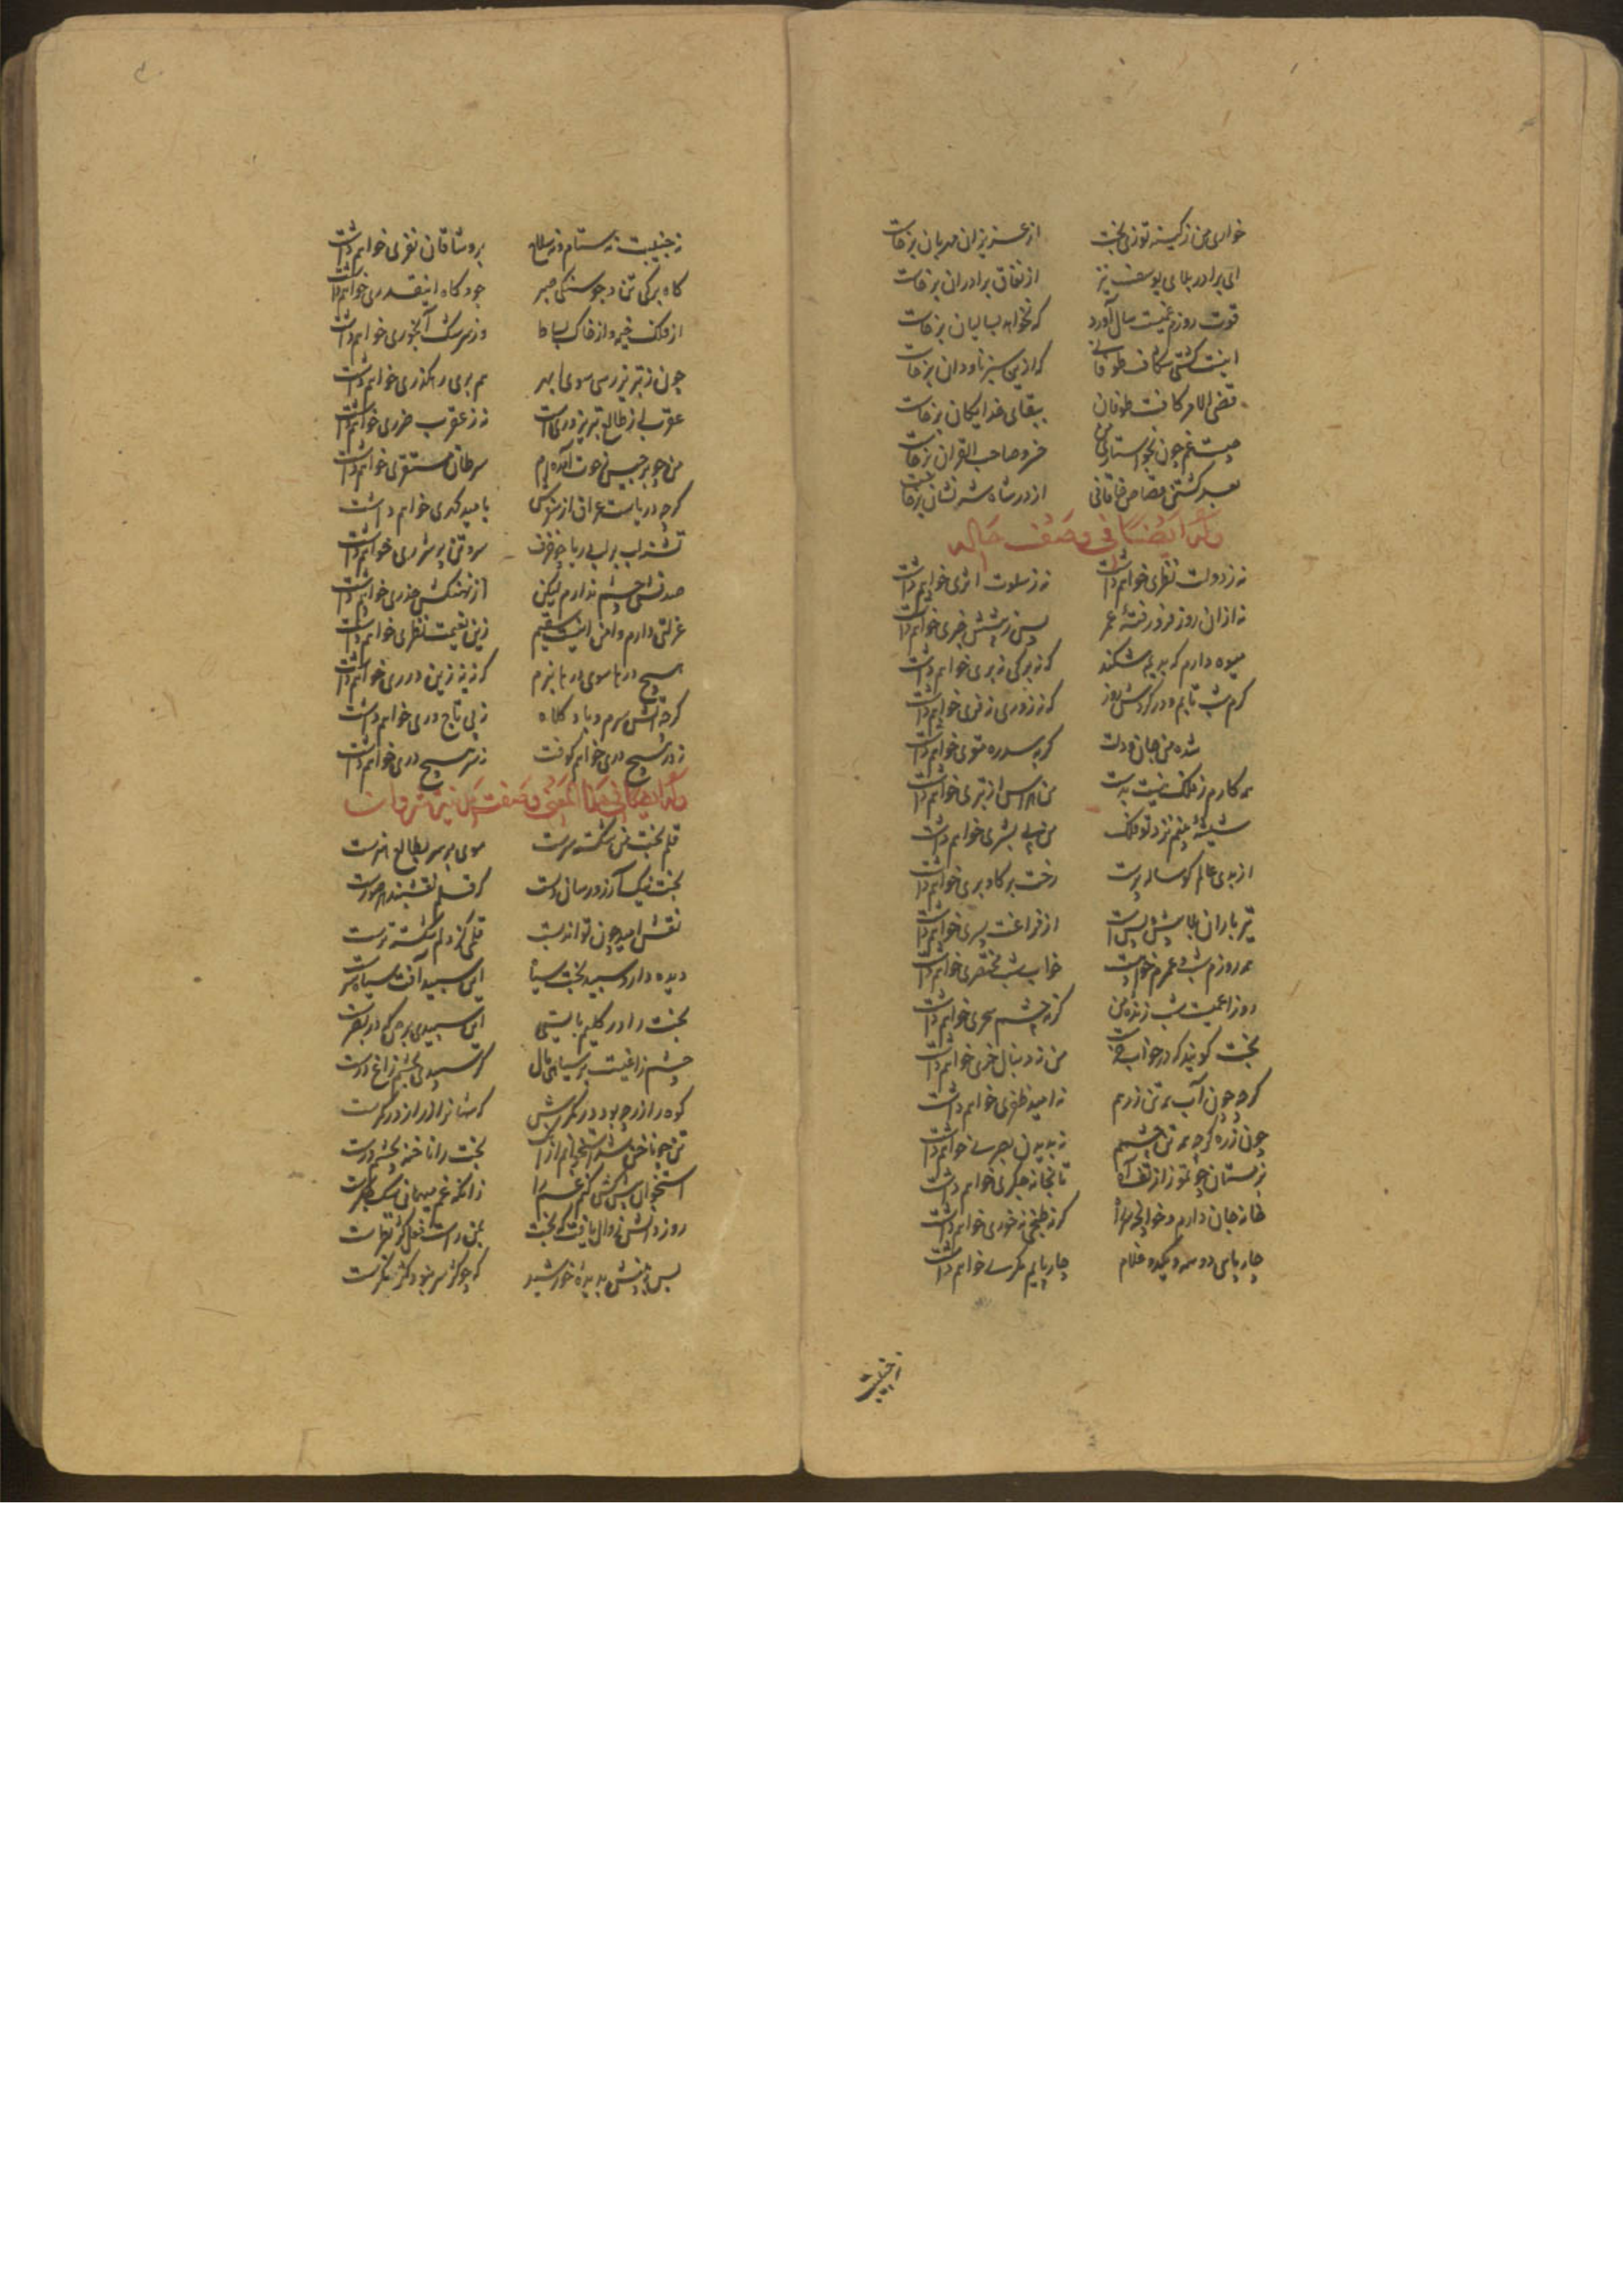 خواری من ز کینه توزی بخت از عزیزان مهربان برخاست
ای برادر بلای یوسف نیز از نفاق برادران برخاست
قوت روزم غمیست سال آورد که نخواهد بسالیان برخاست
اینت کشتی شکاف طوفانی که ازین سبز بادبان برخاست
قضی الامر کافت طوفان ببقای خدایگان برخاست
نیست غم چون بخواستاری من خسرو صاحب القران برخاست
بعد کشتن قصاص خاقانی از در شاه شه نشان برخاست
وله ایضا فی وصف حاله
نه ز دولت نظری خواهم داشت نه ز سلوت اثری خواهم داشت
نه از آن روز فرو رفتهٔ عمر پس پیشین خبری خواهم داشت
میوه دارم که بدیم شکند که نه برگی نه بری خواهم داشت
کرم شب تابم و در گردش روز که نه زوری نه فری خواهم داشت
شده من جان و دلت گر بسدره مقری خواهم داشت
همه کارم ز فلک نیست بدست من هراس از بتری خواهم داشت
شیشهٔ بینم نزد تو فلک من نه پی بشری خواهم داشت
از بدی عالم گوساله پرست رخت بر گاو بری خواهم داشت
تیر باران بلا پیش و پس است از فراغت سپری خواهم داشت
همه روزم شد و عمرم خواب است خواب شب مختصری خواهم داشت
روز اعمیست شب زندهٔ من که نه چشم سحری خواهم داشت
بخت گویند که در خواب خر است من نه دنبال خری خواهم داشت
گرچه چون آب همه تن زرهم نه امید ظفری خواهم داشت
چون زره گرچه همه تن چشمم نه بدیدن بصری خواهم داشت
بزمستان چو تموز از تف آه تا بخانه جگری خواهم داشت
خانه جان دارم و خوانچه سر راه که نه طبخی نه خوری خواهم داشت
چارپایی دو سه و یکدو غلام چارپایم مکری خواهم داشت
نه جنیبت
نه جنیبت نه ستام و نه سلاح بروشاقان نفری خواهم داشت
کاه برگی تن و جوسنگی صبر جو و کاه اینقدری خواهم داشت
از فلک خیمه و از خاک بساط وز سرشک آبخوری خواهم داشت
چون ز تبریز رسی سوی ابهر هم بری رهگذری خواهم داشت
عقربی از طالع تبریز وری است نه ز عقرب ضرری خواهم داشت
من چو برجیس ز حوت آمده‌ام سرطان مستقری خواهم داشت
گرچه دریاست عراق از تنوش با امید گهری خواهم داشت
تشنه لب بر لب دریا چو صدف سر و تن پوشری خواهم داشت
صدف چشم ندارم لیکن از نهنگش حذری خواهم داشت
عزلتی دارم و امن اینت نعیم زین نعیمت نظری خواهم داشت
هیچ درها سوی درها نبرم که نه زین در دری خواهم داشت
گرچه آتش سرم و باد کلاه نه پی تاج وری خواهم داشت
نه در هیچ دری خواهم کوفت نه سر هیچ دری خواهم داشت
وله ایضا فی هذا المعنی وصفت
قلم بخت من شکسته سرست موی بر سر بطالع هنرست
بخت نیک آرزو رسان دلست که قلم نقشبند هر صورست
نقش امید چون تواند بست قلمی کز دلم شکسته ترست
دیده دارد سپید بخت سیاه این سپید آفت سیاه سرست
بخت را در گلیم بایستی این سپیدی برص که در بصرست
چشم زاغیست بر سیاهی بال گر سپیدی بچشم زاغ درست
کوه را زر چه بود در کمرش که شبانرا زر از زر کمرست
تن چو ناخن شد استخوانم ازانک بخت را ناخنه بچشم درست
استخوان پیشکش کنم غم را زانکه غم میهمان سگ جگرست
روز دانش زوال یافت که بخت بمن راست فعل کژ نظرست
بس نپوشش بدیدهٔ خورشید که چو کژ سر بود کژ نگرست